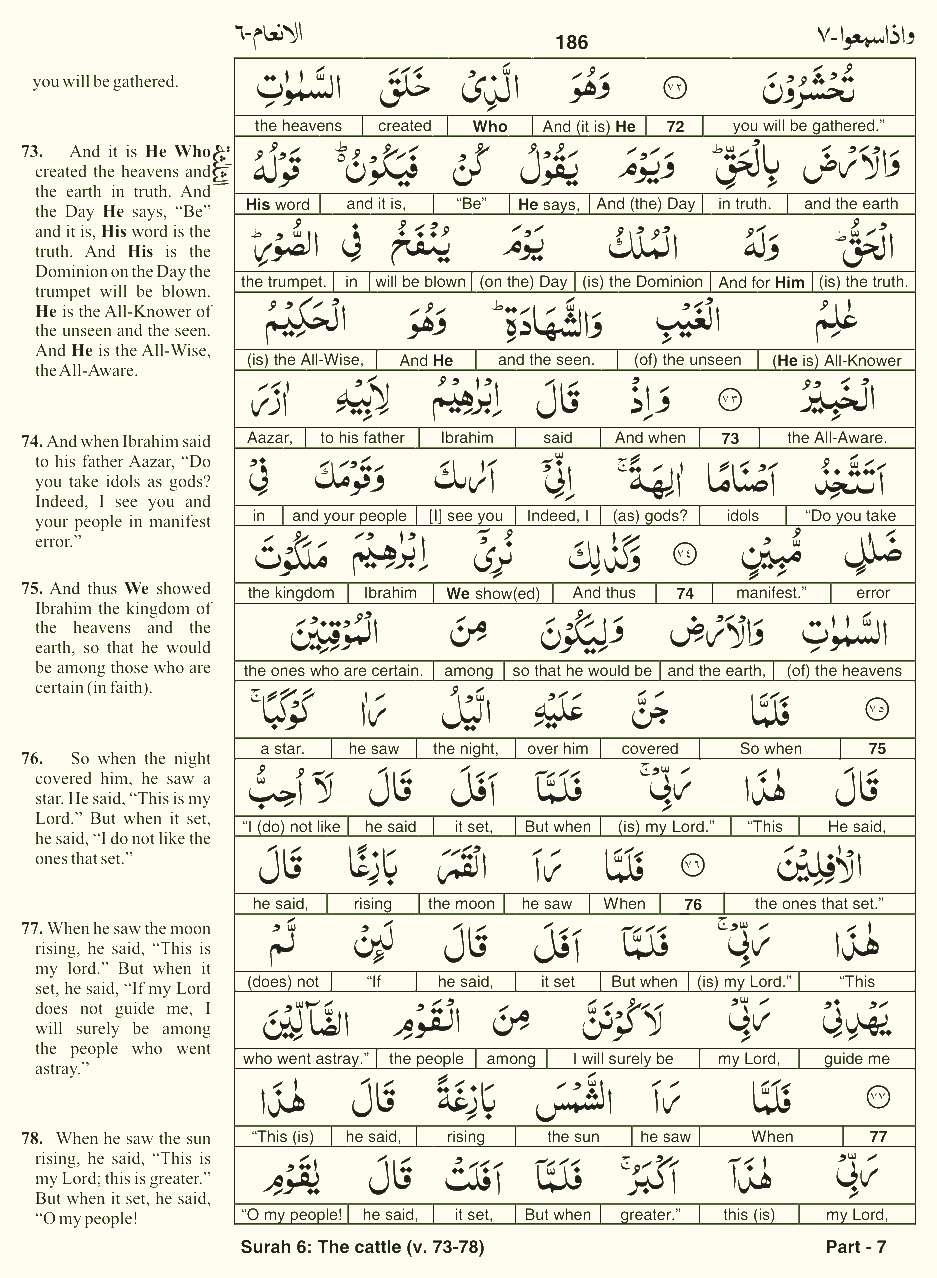 واذاسمعوا-٧ 186 الانعام-٦
you will be gathered.
73. And it is He Who
created the heavens and
the earth in truth. And
the Day He says, “Be”
and it is, His word is the
truth. And His is the
Dominion on the Day the
trumpet will be blown.
He is the All-Knower of
the unseen and the seen.
And He is the All-Wise,
the All-Aware.
74. And when Ibrahim said
to his father Aazar, “Do
you take idols as gods?
Indeed, I see you and
your people in manifest
error.”
75. And thus We showed
Ibrahim the kingdom of
the heavens and the
earth, so that he would
be among those who are
certain (in faith).
76. So when the night
covered him, he saw a
star. He said, “This is my
Lord.” But when it set,
he said, “I do not like the
ones that set.”
77. When he saw the moon
rising, he said, “This is
my lord.” But when it
set, he said, “If my Lord
does not guide me, I
will surely be among
the people who went
astray.”
78. When he saw the sun
rising, he said, “This is
my Lord; this is greater.”
But when it set, he said,
“O my people!
تُحْشَرُوْنَ ٧٢ وَهُوَ الَّذِيْ خَلَقَ السَّمٰوٰتِ
you will be gathered.” 72 And (it is) He Who created the heavens
وَالْاَرْضَ بِالْحَقِّؕ وَيَوْمَ يَقُوْلُ كُنْ فَيَكُوْنُؕ قَوْلُهُ
and the earth in truth. And (the) Day He says, “Be” and it is, His word
الْحَقُّؕ وَلَهُ الْمُلْكُ يَوْمَ يُنْفَخُ فِي الصُّوْرِؕ
(is) the truth. And for Him (is) the Dominion (on the) Day will be blown in the trumpet.
عٰلِمُ الْغَيْبِ وَالشَّهَادَةِؕ وَهُوَ الْحَكِيْمُ
(He is) All-Knower (of) the unseen and the seen. And He (is) the All-Wise,
الْخَبِيْرُ ٧٣ وَاِذْ قَالَ اِبْرٰهِيْمُ لِاَبِيْهِ اٰزَرَ
the All-Aware. 73 And when said Ibrahim to his father Aazar,
اَتَتَّخِذُ اَصْنَامًا اٰلِهَةًۚ اِنِّيْٓ اَرٰىكَ وَقَوْمَكَ فِيْ
“Do you take idols (as) gods? Indeed, I [I] see you and your people in
ضَلٰلٍ مُّبِيْنٍ ٧٤ وَكَذٰلِكَ نُرِيْٓ اِبْرٰهِيْمَ مَلَكُوْتَ
error manifest.” 74 And thus We show(ed) Ibrahim the kingdom
السَّمٰوٰتِ وَالْاَرْضِ وَلِيَكُوْنَ مِنَ الْمُوْقِنِيْنَ
(of) the heavens and the earth, so that he would be among the ones who are certain.
٧٥ فَلَمَّا جَنَّ عَلَيْهِ الَّيْلُ رَاٰ كَوْكَبًاۚ
75 So when covered over him the night, he saw a star.
قَالَ هٰذَا رَبِّيْۚ فَلَمَّآ اَفَلَ قَالَ لَآ اُحِبُّ
He said, “This (is) my Lord.” But when it set, he said “I (do) not like
الْاٰفِلِيْنَ ٧٦ فَلَمَّا رَاَ الْقَمَرَ بَازِغًا قَالَ
the ones that set.” 76 When he saw the moon rising he said,
هٰذَا رَبِّيْۚ فَلَمَّآ اَفَلَ قَالَ لَئِنْ لَّمْ
“This (is) my Lord.” But when it set he said, “If (does) not
يَهْدِنِيْ رَبِّيْ لَاَكُوْنَنَّ مِنَ الْقَوْمِ الضَّآلِّيْنَ
guide me my Lord, I will surely be among the people who went astray.”
٧٧ فَلَمَّا رَاَ الشَّمْسَ بَازِغَةً قَالَ هٰذَا
77 When he saw the sun rising he said, “This (is)
رَبِّيْ هٰذَآ اَكْبَرُۚ فَلَمَّآ اَفَلَتْ قَالَ يٰقَوْمِ
my Lord, this (is) greater.” But when it set, he said, “O my people!
Surah 6: The cattle (v. 73-78) Part - 7